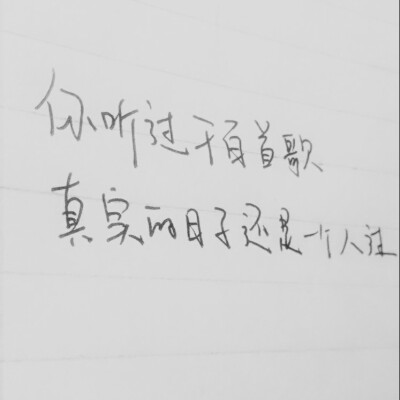 你听过千百首歌
真实的日子还是一个人过